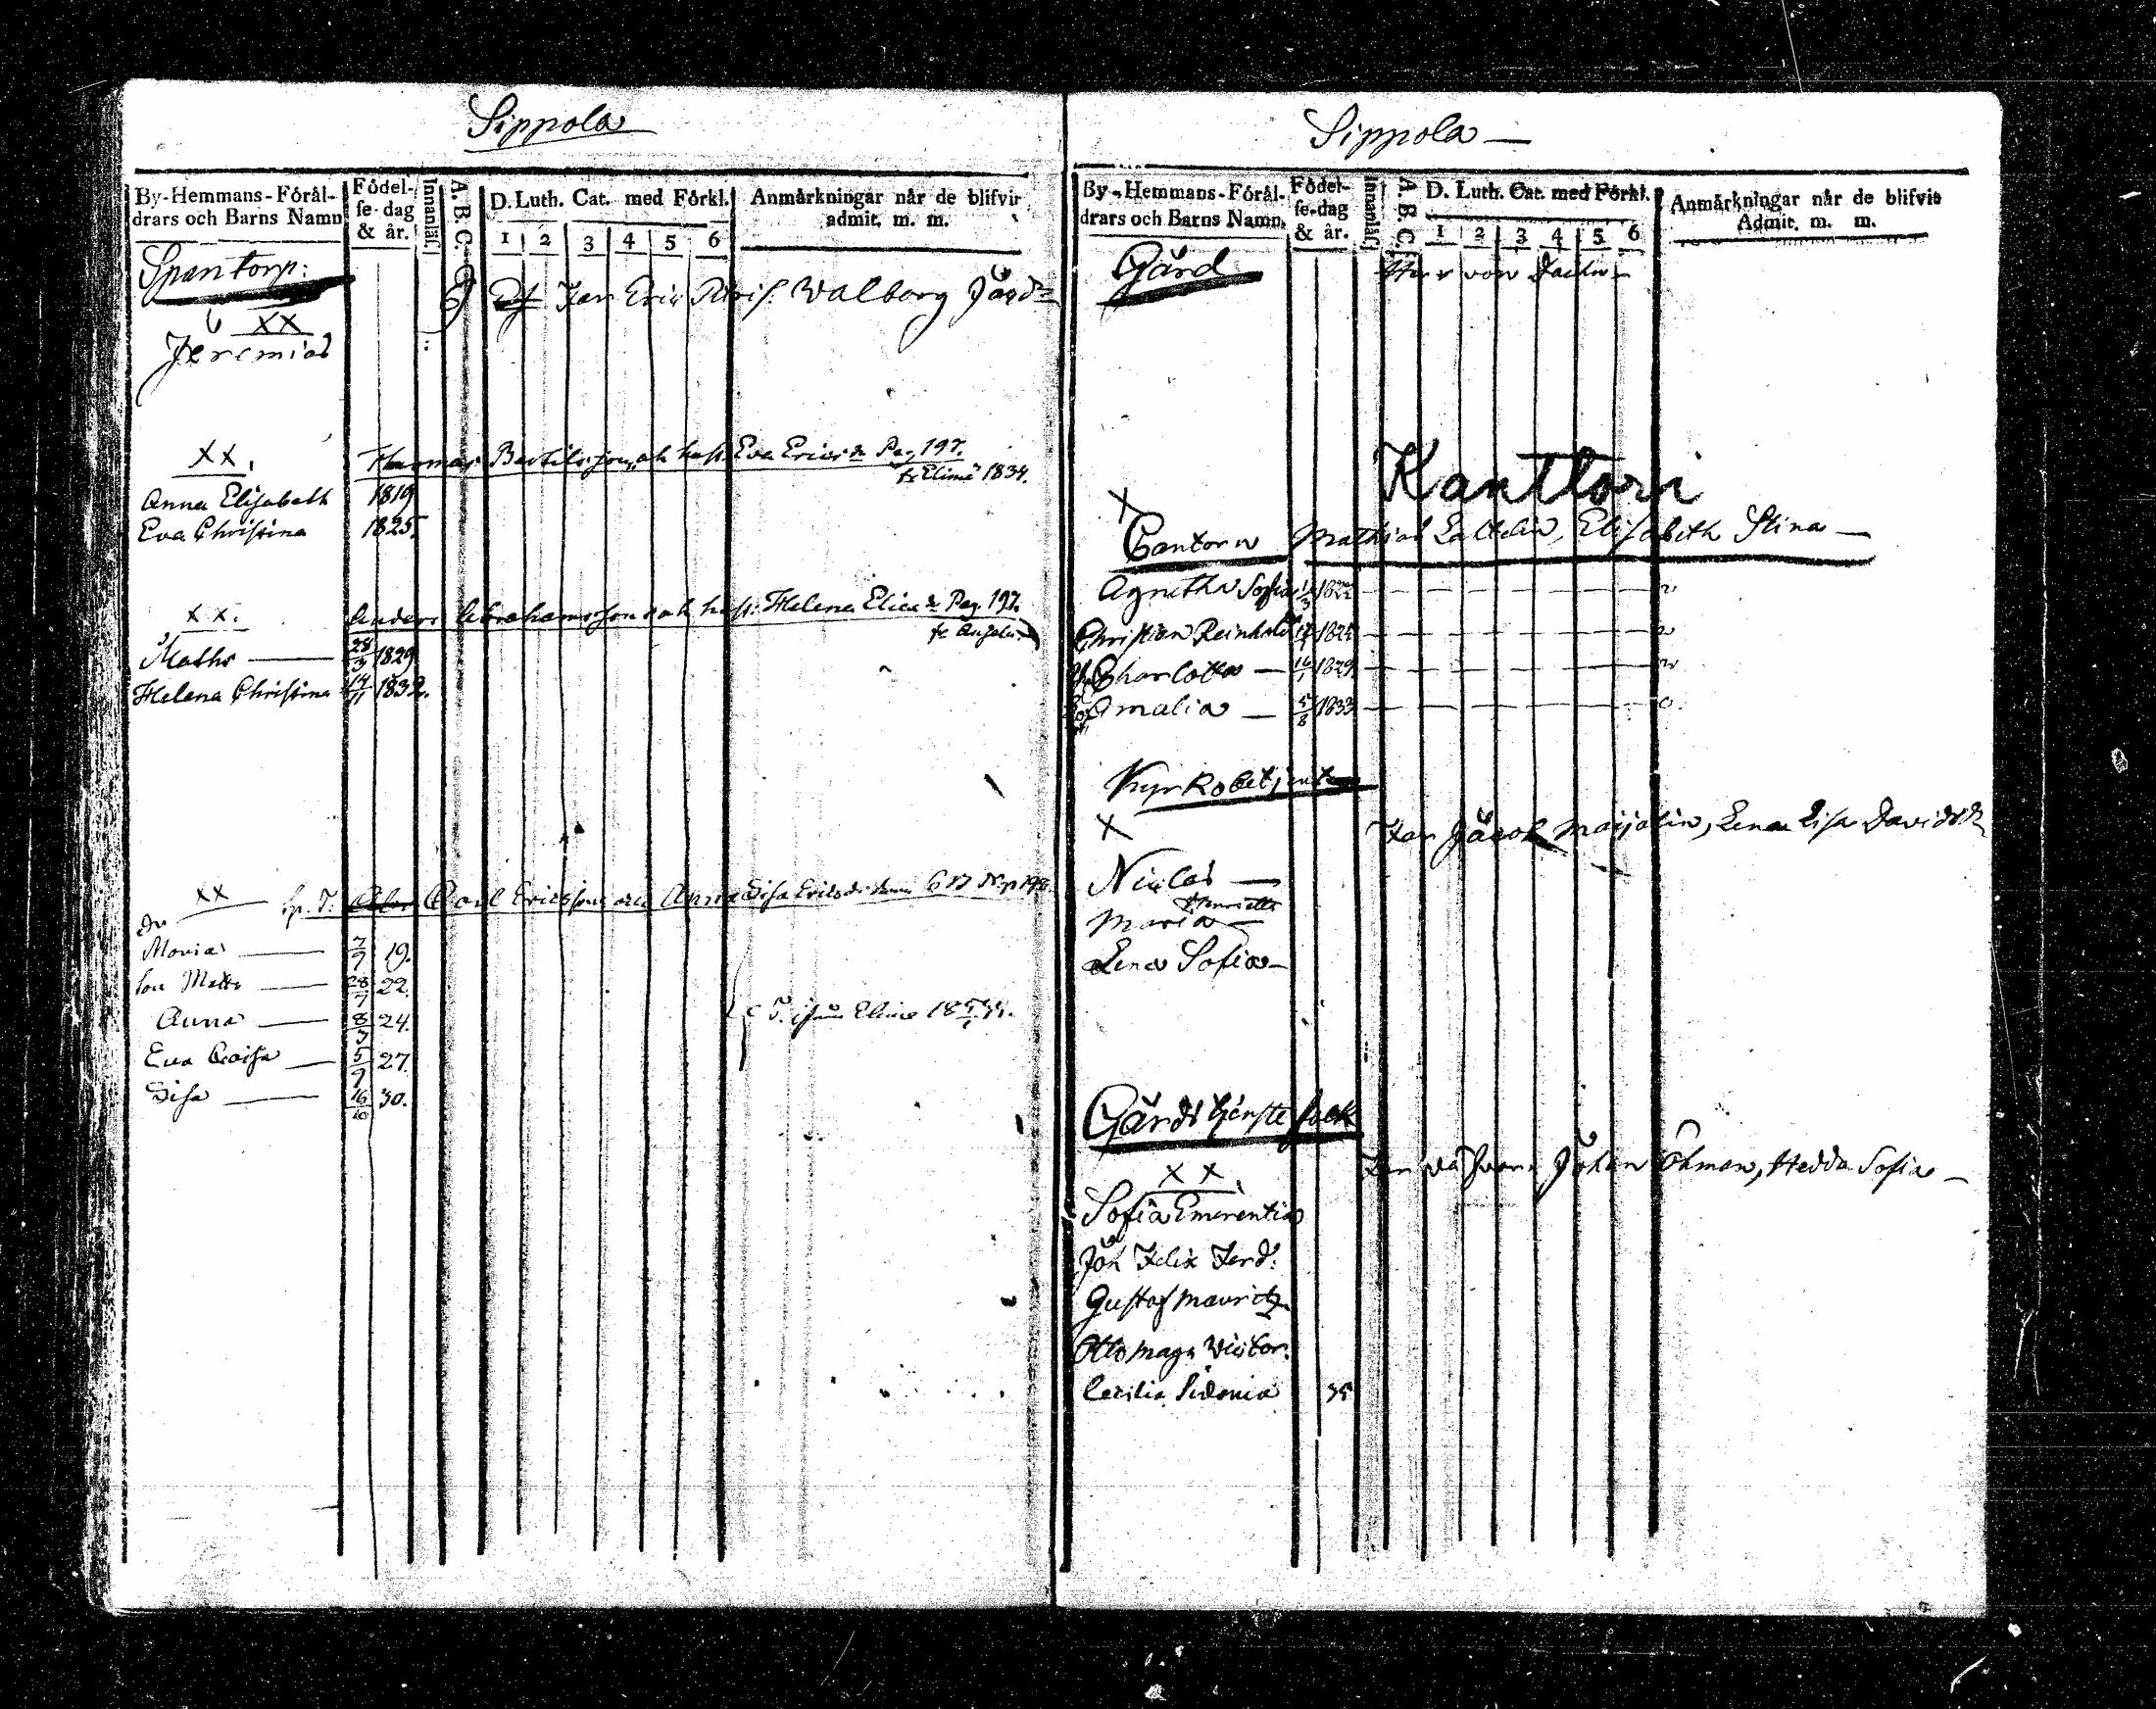 Sippola
By-Hemmans-Förål-
drars och Barns Namn
Födel-
se-dag
& år.
Innanläs.
A. B. C.
D. Luth. Cat. med Förkl.
1 2 3 4 5 6
Anmärkningar når de blifvit
admit. m. m.
Spantorp:
Walborg
XX
Jeremias
XX.
Thomas Bertilsson och hust. Eva Ericsdr Pag. 197.
Elimä 1834.
Anna Elisabeth 1819
Eva Christina 1825.
XX.
Anders Abrahamsson och hust: Helena Elia Pag. 197.
Maths 28/3 1829
Helena Christina 14/11 1832.
XX
Carl Ericsson och Anna Lisa Ericsdr
Maria 7/7 19.
son Matts 28/7 22.
Anna 8/3 24.
Eva Caisa 5/9 27.
Lisa 16/10 30.
Elime
Sippola
By-Hemmans-Förål-
drars och Barns Namn.
Födel-
se-dag
& år.
Innanläs.
A. B. C.
D. Luth. Cat. med Förkl.
1 2 3 4 5 6
Anmärkningar når de blifvit
Admit. m. m.
Gård
Herr von Daehn
Kanttori
X
Cantorn Mathias Elisabeth Stina
Agnetha Sofia 1822
Christian Reinhold 1825
Charlotta 1829
Amalia 5/8 1833
Kyrkobetjente
X
Jacob Maijalin, Lena Lisa Davidsdr
Niclas
Henrietta
Maria
Lena Sofia
Gårds tjenste folk
Johan Öhman, Hedda Sofia
XX.
Sofia Emerentia
Joh Felix Ferd:
Gustaf Mauritz
Otto Magn Victor.
Cecilia Sidonia 35